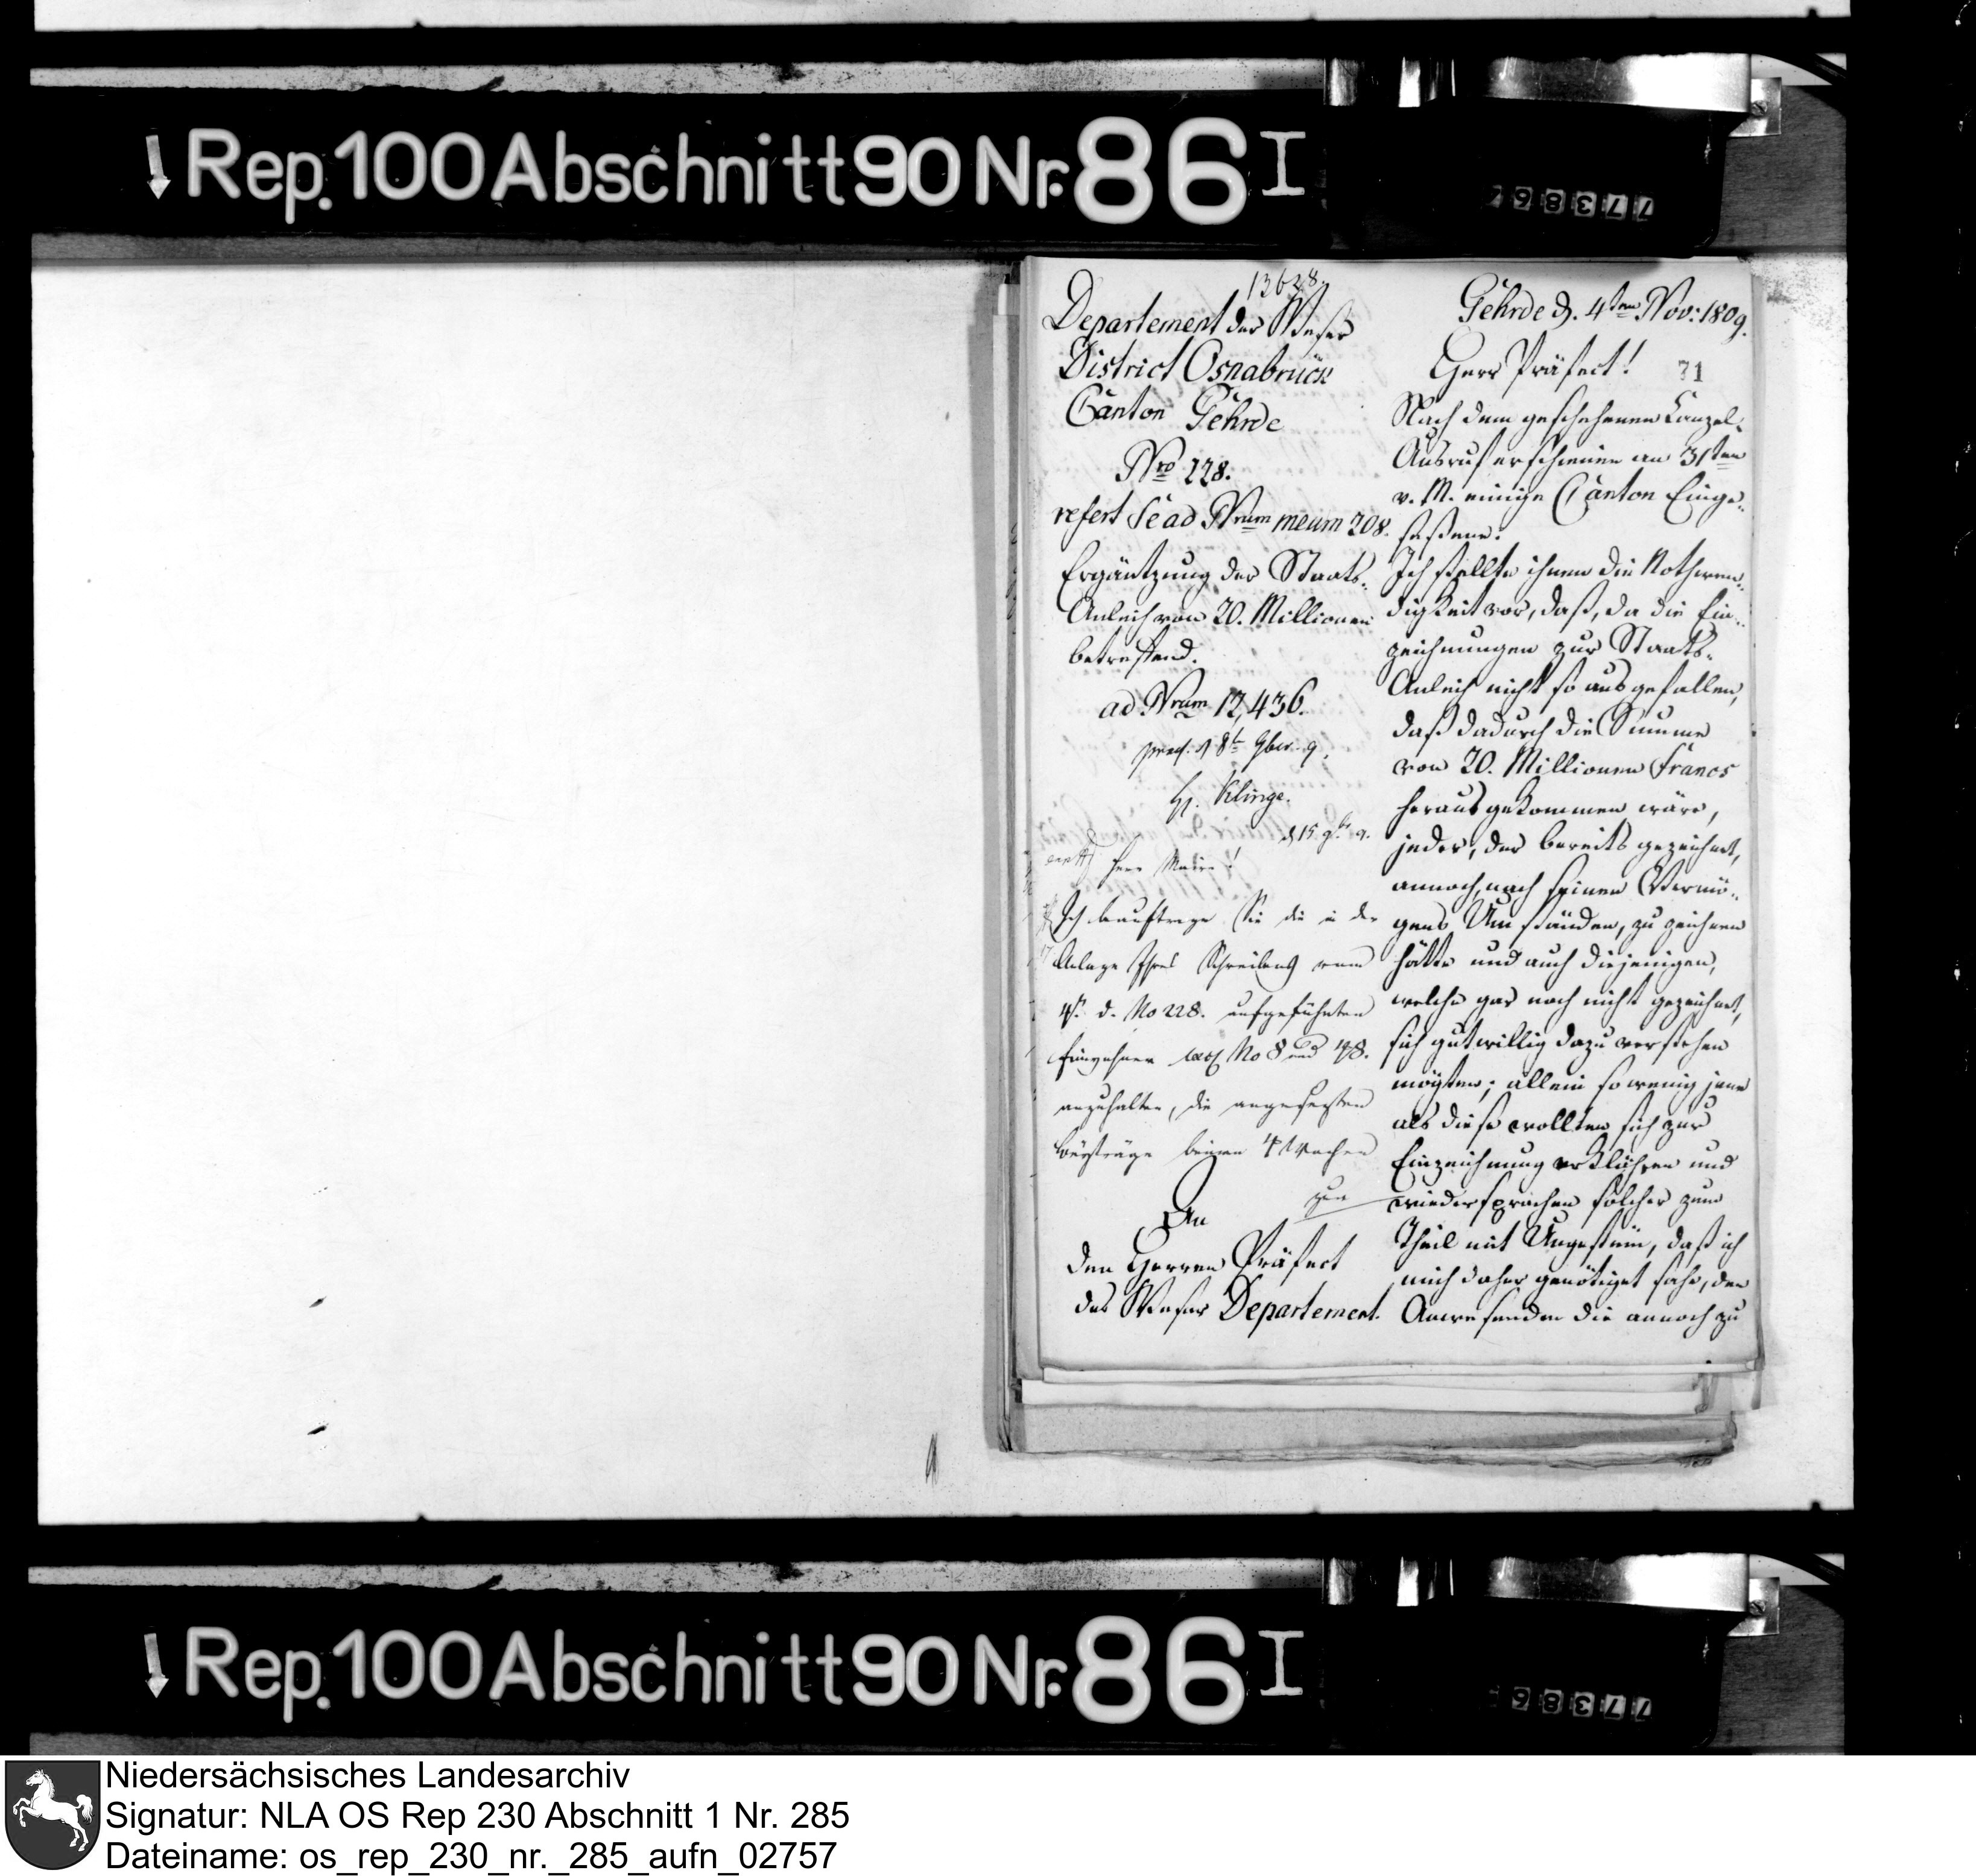 Rep. 100 Abschnitt 90 Nr. 86 I
77386
13628.
Departement der Weser
District Osnabrück
Canton Gehrde
Nro 228.
refert se ad Nrum meum 208.
Ergäntzung der Staats-
Anleih von 20. Millionen
betreffend.
ad Nrum 12,436.
praes. d 8t 9ber. 9.
H. Klinge.
d 15. 9br 9.
Herr Maire!
Ich beauftrage Sie die in der
Anlage Ihres Schreibens vom
4t. d. No 228. aufgeführten
Einwohner No 8 und 48.
anzuhalten, die angesetzten
Beyträge binnen 4 Wochen
An
den Herren Präfect
des Weser Departement.
Gehrde d. 4ten Nov: 1809.
Herr Präfect!
31
Nach dem geschehenen Canzel-
Ausruf erschienen am 31ten
v. M. einige Canton Einge-
seßene.
Ich stellte ihnen die Nothwen-
digkeit vor, daß, da die Ein-
zeichnungen zur Staats-
Anleih nicht so ausgefallen,
daß dadurch die Summe
von 20. Millionen Francs
herausgekommen wäre,
jeder, der bereits gezeichnet,
annoch, nach seinen Vermö-
gens Umständen, zu zeichnen
hätte und auch diejenigen,
welche gar noch nicht gezeichnet,
sich gutwillig dazu verstehen
mögten; allein so wenig jene
als diese wollten sich zur
Einzeichnung erklähren und
wiedersprachen solcher zum
Theil mit Ungestüm, daß ich
mich daher genötiget sahe, den
Anwesenden die annoch zu
Rep. 100 Abschnitt 90 Nr. 86 I
77386
Niedersächsisches Landesarchiv
Signatur: NLA OS Rep 230 Abschnitt 1 Nr. 285
Dateiname: os_rep_230_nr._285_aufn_02757